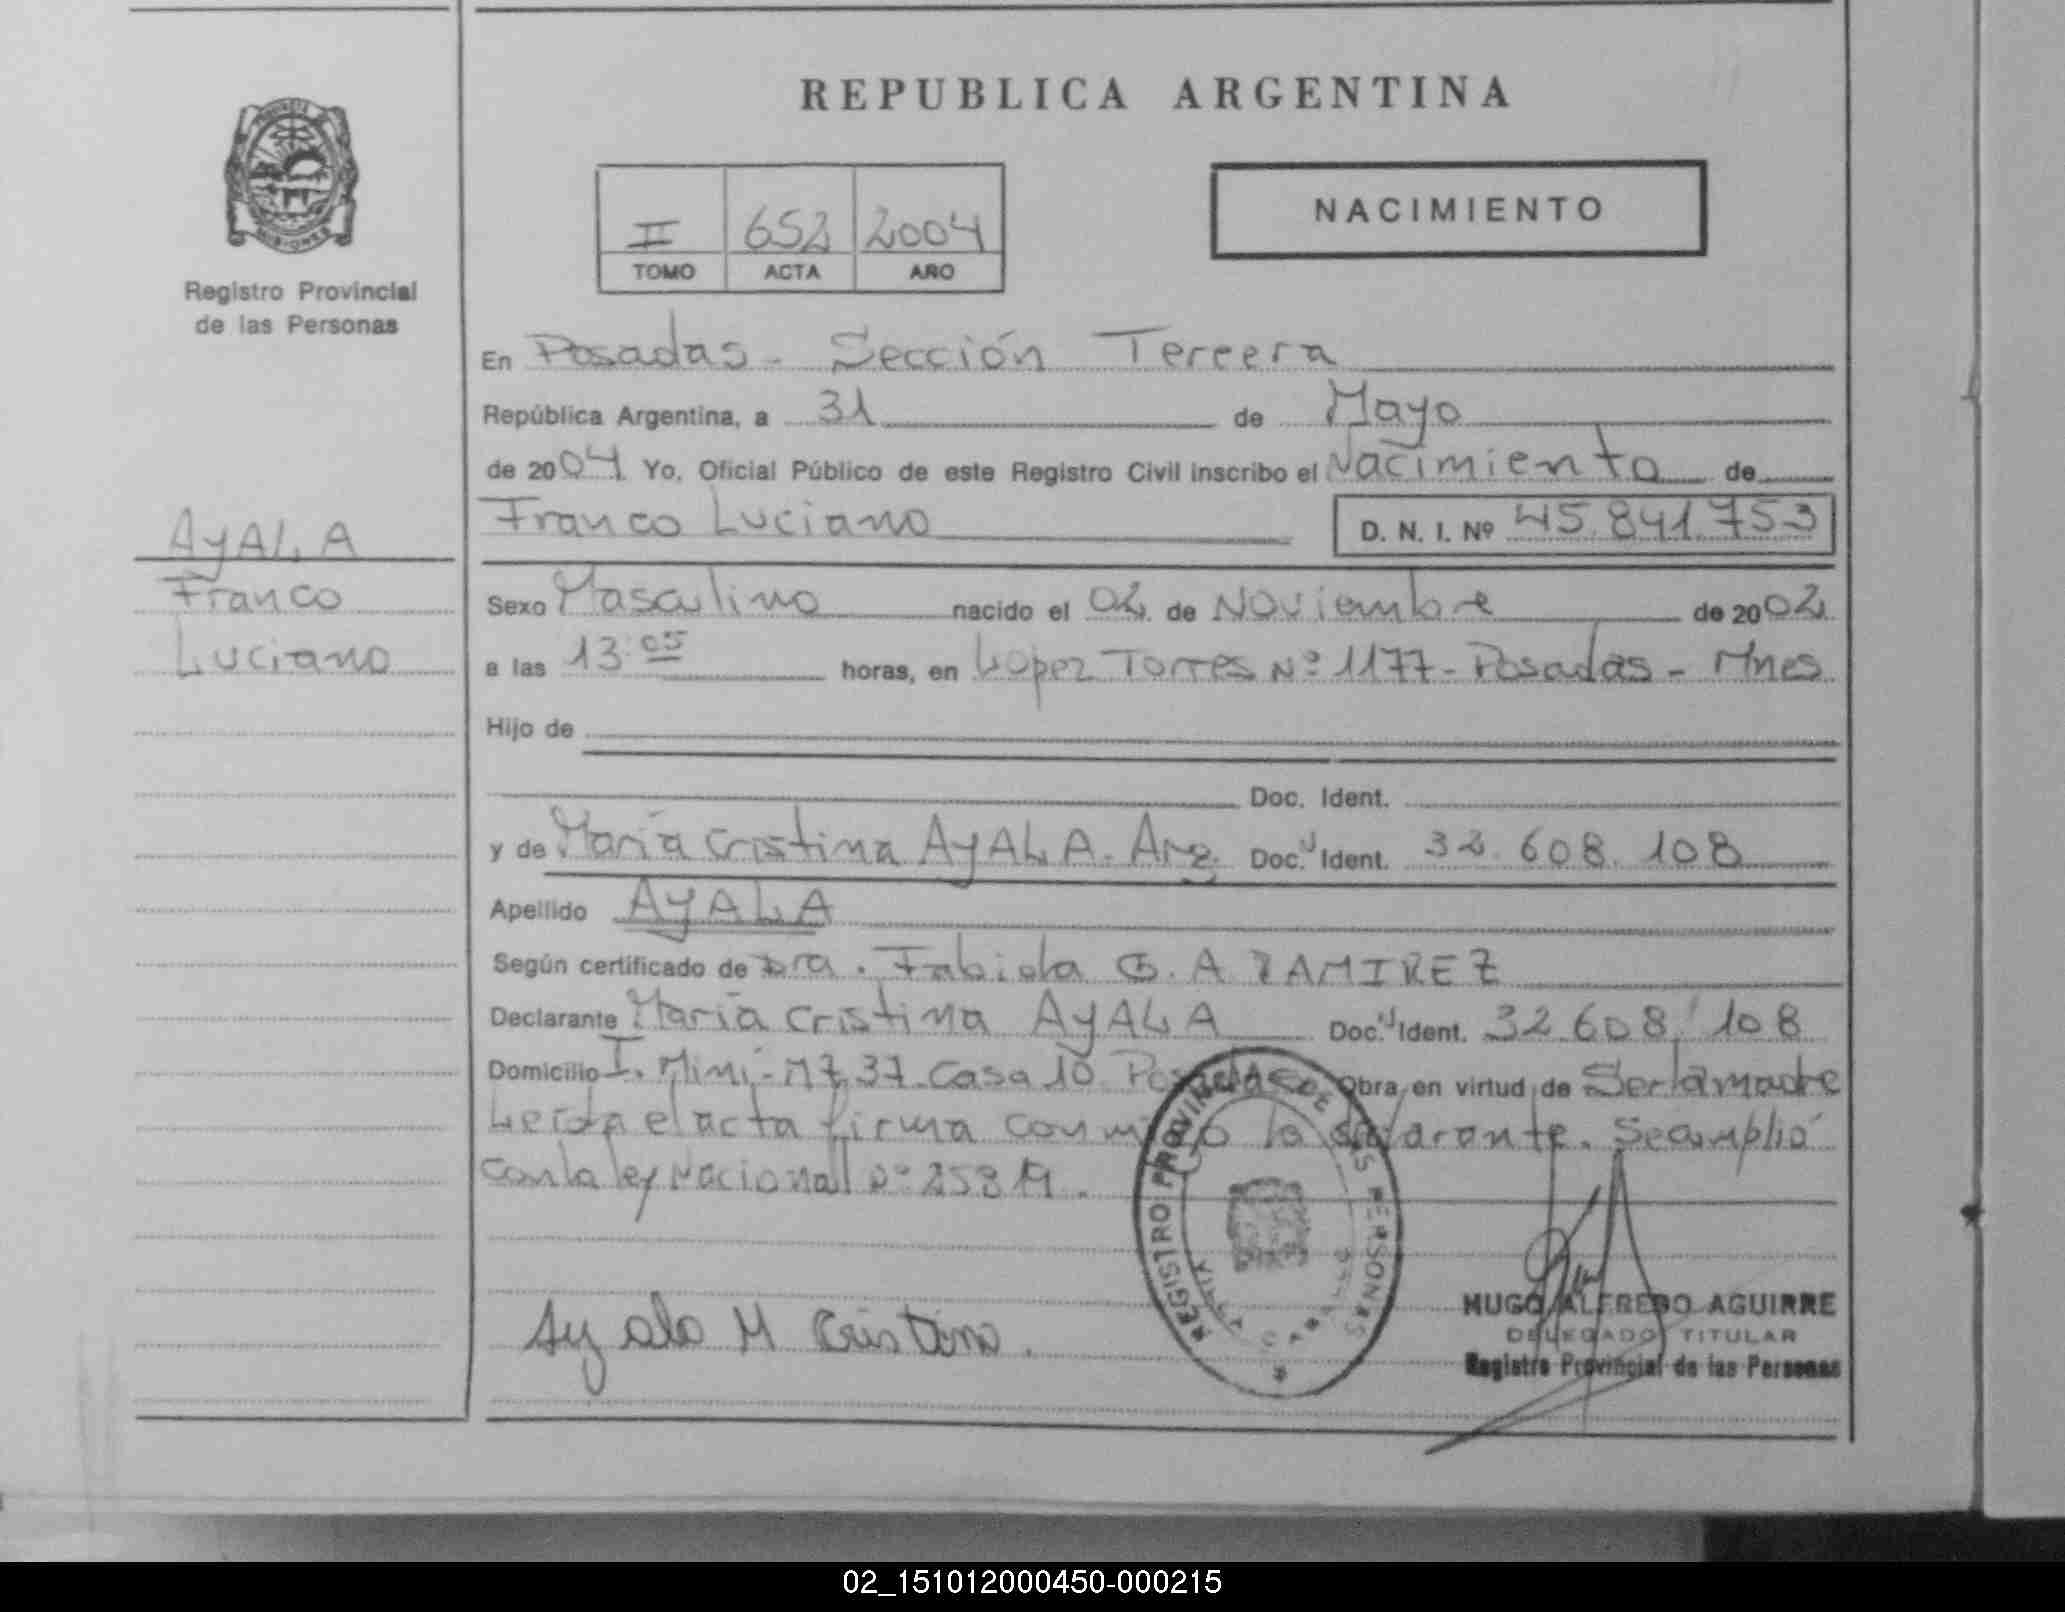 REPUBLICA ARGENTINA
PROVINCIA DE MISIONES
Registro Provincial
de las Personas
II 652 2004
TOMO ACTA AÑO
NACIMIENTO
En Posadas - Sección Tercera
República Argentina, a 31 de Mayo
de 2004 Yo, Oficial Público de este Registro Civil inscribo el Nacimiento de
Franco Luciano D. N. I. Nº 45.841.753
AYALA
Franco
Luciano
Sexo Masculino nacido el 02 de Noviembre de 2002
a las 13:05 horas, en Lopez Torres Nº 1177 - Posadas - Mnes
Hijo de
Doc. Ident.
y de María Cristina AYALA - Arg. Doc. Ident. 32.608.108
Apellido AYALA
Según certificado de Dra. Fabiola G. A. RAMIREZ
Declarante María Cristina AYALA Doc. Ident. 32.608.108
Domicilio I. Miní - Mz 37 - Casa 10 Posadas Obra en virtud de Ser la madre
Leida el acta firma conmigo la declarante. Se cumplió
con la ley Nacional Nº 25819.
REGISTRO PROVINCIAL DE LAS PERSONAS
Ayala M Cristina.
HUGO ALFREDO AGUIRRE
DELEGADO TITULAR
Registro Provincial de las Personas
02_151012000450-000215